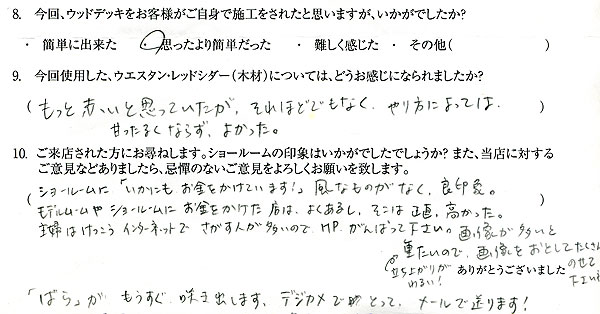 8. 今回、ウッドデッキをお客様がご自身で施工をされたと思いますが、いかがでしたか?
・ 簡単に出来た ・ 思ったより簡単だった ・ 難しく感じた ・ その他( )
9. 今回使用した、ウエスタン・レッドシダー(木材)については、どうお感じになられましたか?
( もっと赤いと思っていたが、それほどでもなく、やり方によっては、 )
甘ったるくならず、よかった。
10. ご来店された方にお尋ねします。ショールームの印象はいかがでしたでしょうか? また、当店に対する
ご意見などありましたら、忌憚のないご意見をよろしくお願いを致します。
( ショールームに「いかにもお金をかけています!」風なものがなく、良印象。 )
モデルルームやショールームにお金をかけた店は、よくあるし、そこは正直、高かった。
主婦はけっこうインターネットでさがす人が多いので、HP、がんばって下さい。画像が多いと
重たいので、画像をおとしてたくさん
のせて
下さい
立ち上がりが
わるい!
ありがとうございました
「ばら」がもうすぐ咲き出します、デジカメでとって、メールで送ります!